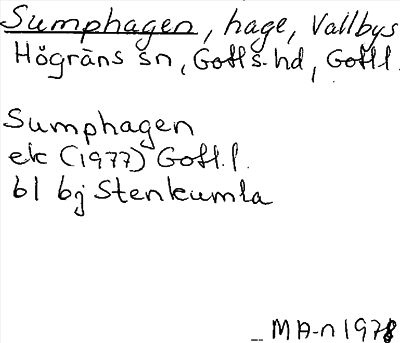 Sumphagen, hage, Vallbys
Högräns sn, Gotl s. hd, Gotl l.
Sumphagen
ek (1977) Gotl. l.
bl bj Stenkumla
MA-n 1978